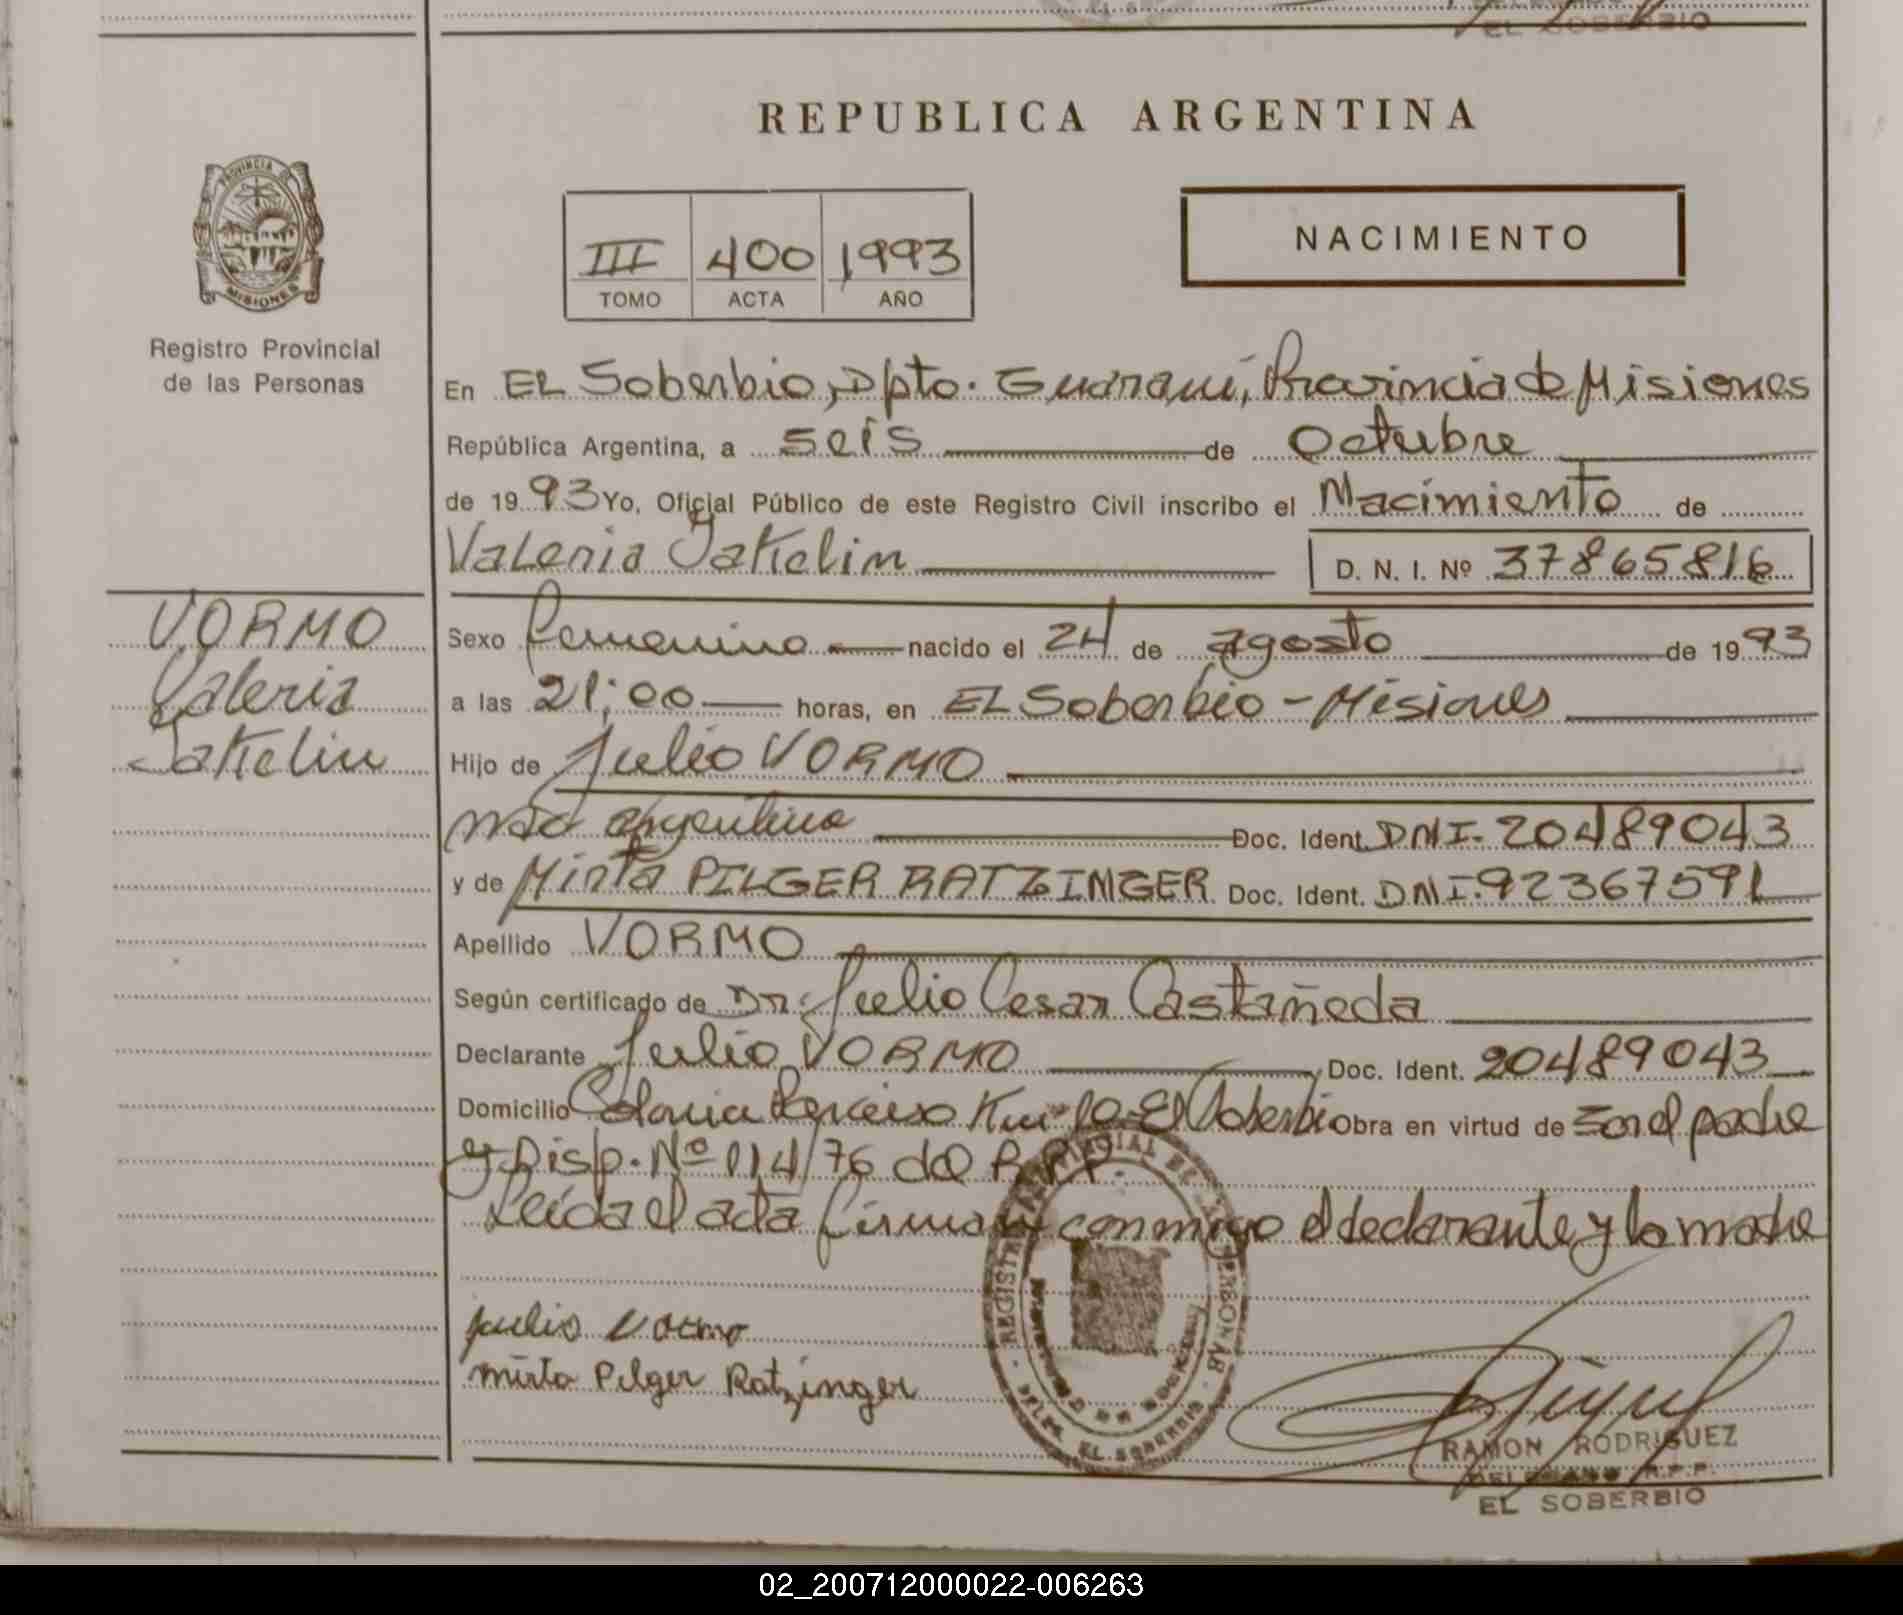 EL SOBERBIO
REPUBLICA ARGENTINA
PROVINCIA DE
MISIONES
Registro Provincial
de las Personas
III 400 1993
TOMO ACTA AÑO
NACIMIENTO
En EL Soberbio, Dpto. Guaraní, Provincia de Misiones
República Argentina, a seis de Octubre
de 1993 Yo, Oficial Público de este Registro Civil inscribo el Nacimiento de
Valeria Jakelin D. N. I. Nº 37865816
VORMO
Valeria
Jakelin
Sexo Femenino nacido el 24 de agosto de 1993
a las 21:00 horas, en EL Soberbio - Misiones
Hijo de Julio VORMO
argentina Doc. Ident. DNI. 20489043
y de Mirta PILGER RATZINGER Doc. Ident. DNI. 92367591
Apellido VORMO
Según certificado de Dr. Julio Cesar Castañeda
Declarante Julio VORMO Doc. Ident. 20489043
Domicilio Colonia Km 10 - El Soberbio Obra en virtud de Ser el padre
y Disp. Nº 114/76 del R.P.P.
Leída el acta firman conmigo el declarante y la madre
Julio Vormo
mirta Pilger Ratzinger
EL SOBERBIO
RAMON RODRIGUEZ
DELEGADO R.P.P.
EL SOBERBIO
02_200712000022-006263